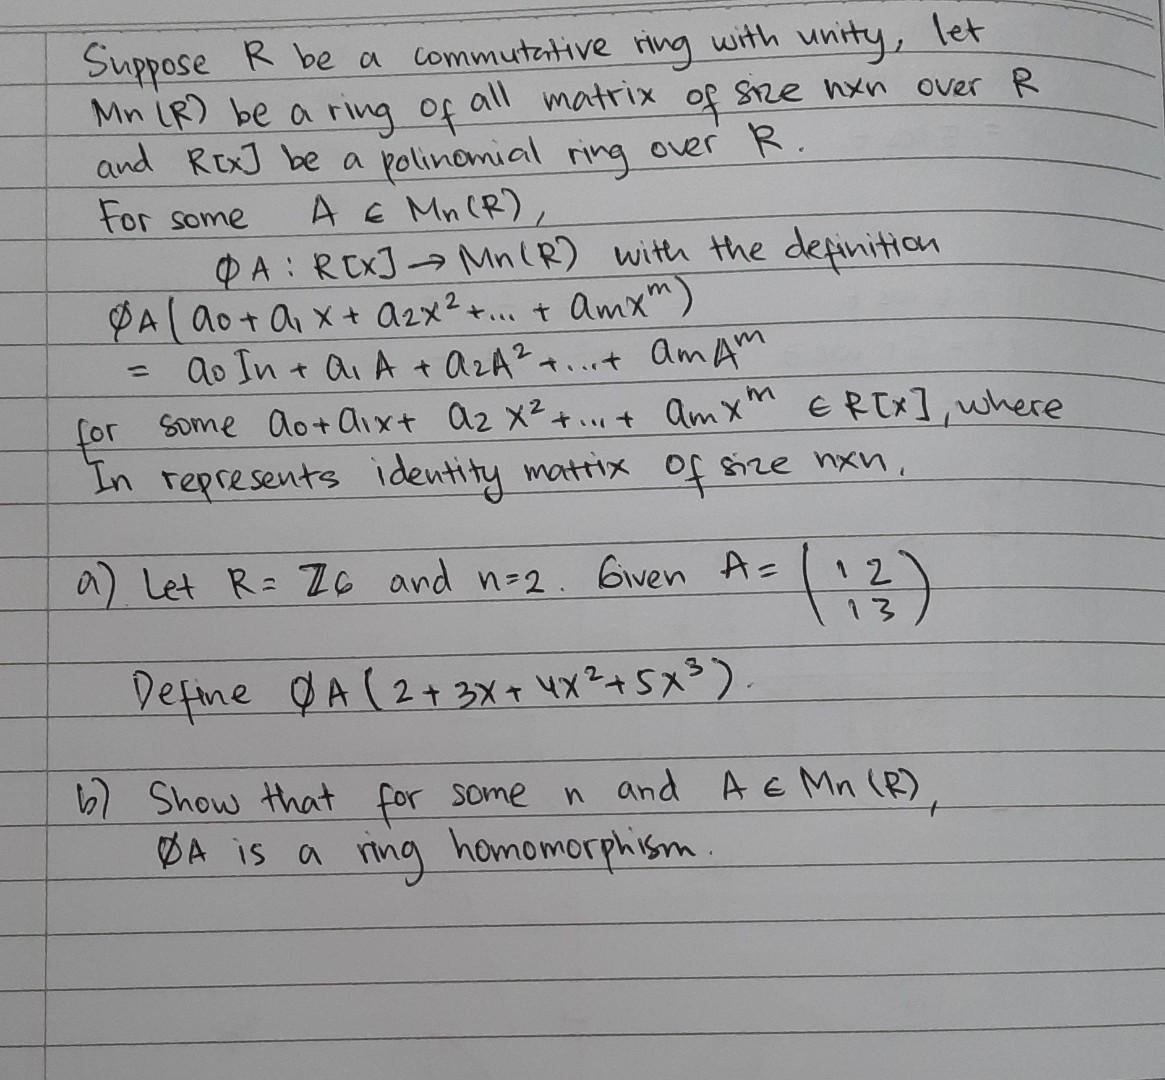 Suppose R be a commutative ring with unity, let
Mn (R) be a ring of all matrix of size nxn over R
and R[x] be a polinomial ring over R.
For some A ∈ Mn (R),
ØA : R[x] → Mn (R) with the definition
ØA ( a0 + a1 x + a2x² + ... + amx^m )
= a0 In + a1 A + a2A² + ... + am A^m
for some a0 + a1x + a2 x² + ... + am x^m ∈ R[x], where
In represents identity matrix of size nxn.
a) Let R = ℤ6 and n=2. Given A = ( 1 2
1 3 )
Define ØA ( 2 + 3x + 4x² + 5x³ ).
b) Show that for some n and A ∈ Mn (R),
ØA is a ring homomorphism.